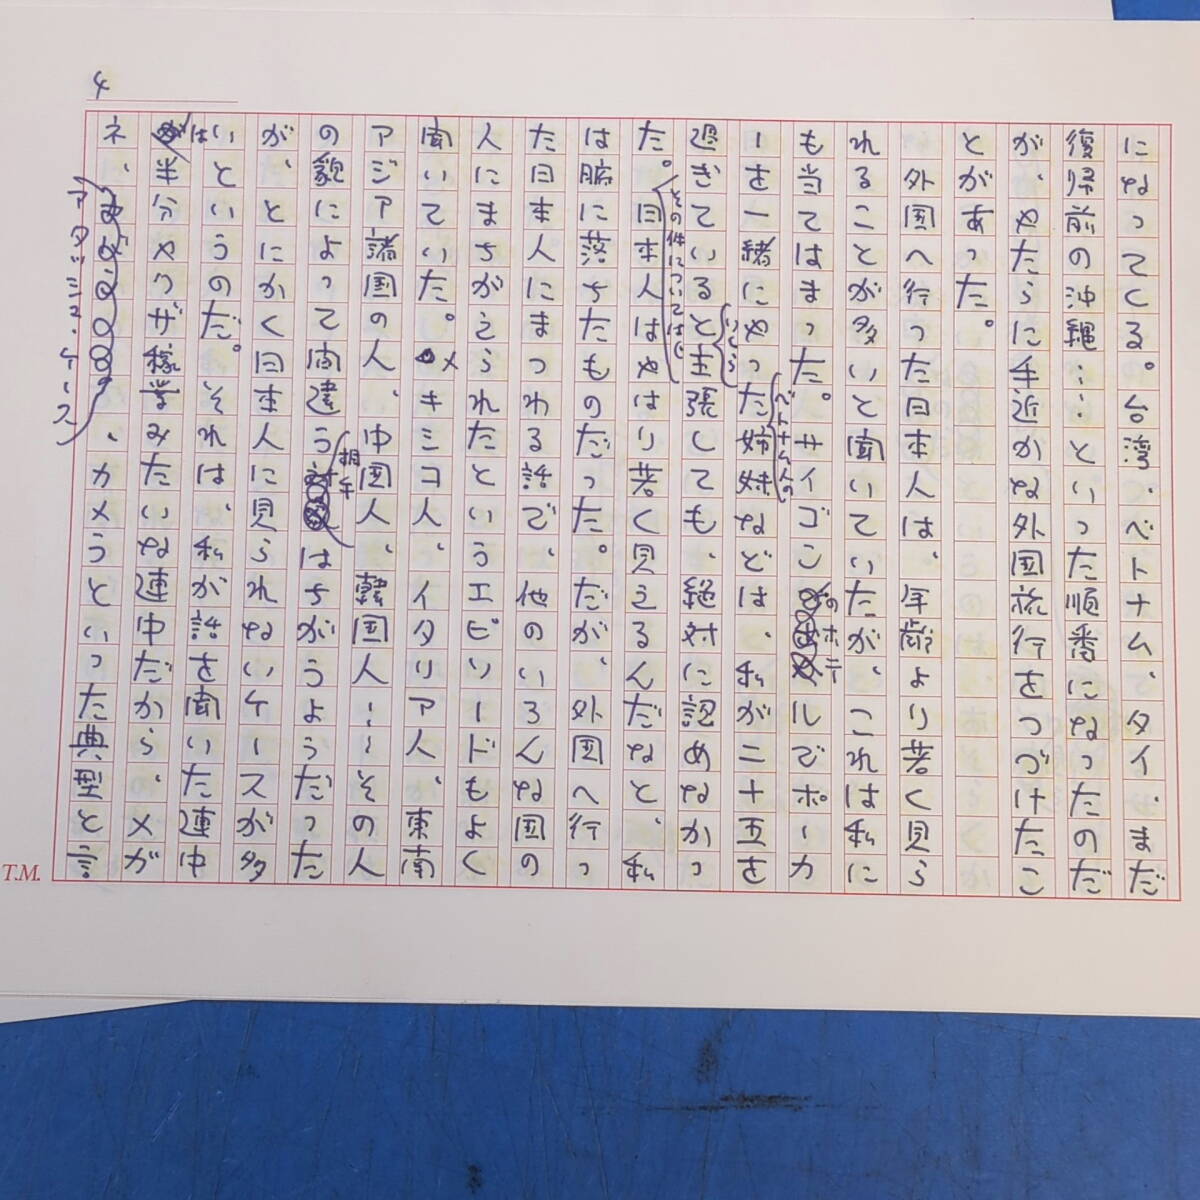 4
になってくる。台湾、ベトナム、タイ、まだ
復帰前の沖縄……といった順番になったのだ
が、やたらに手近かな外国旅行をつづけたこ
とがあった。
外国へ行った日本人は、年齢より若く見ら
れることが多いと聞いていたが、これは私に
も当てはまった。サイゴンのホテルでポーカ
ーを一緒にやったベトナム人の姉妹などは、私が二十五を
過ぎているといくら主張しても、絶対に認めなかっ
た。その件については、日本人はやはり若く見えるんだなと、私
は腑に落ちたものだった。だが、外国へ行っ
た日本人にまつわる話で、他のいろんな国の
人にまちがえられたというエピソードもよく
聞いていた。メキシコ人、イタリア人、東南
アジア諸国の人、中国人、韓国人――その人
の貌によって間違う相手はちがうようだった
が、とにかく日本人に見られないケースが多
いというのだ。それは、私が話を聞いた連中
は半分ヤクザ稼業みたいな連中だから、メガ
ネ、アタッシュ・ケース、カメラといった典型と言
T.M.